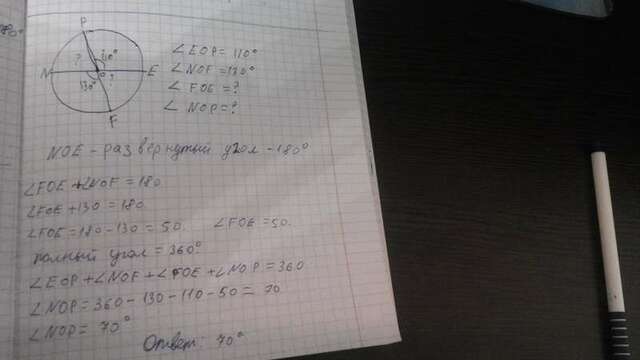 80°
P
? 110°
N O E
130° ?
F
∠EOP = 110°
∠NOF = 130°
∠FOE = ?
∠NOP = ?
NOE - развернутый угол - 180°
∠FOE + ∠NOF = 180
∠FOE + 130 = 180
∠FOE = 180 - 130 = 50. ∠FOE = 50.
полный угол = 360°
∠EOP + ∠NOF + ∠FOE + ∠NOP = 360
∠NOP = 360 - 130 - 110 - 50 = 70
∠NOP = 70°
Ответ: 70°